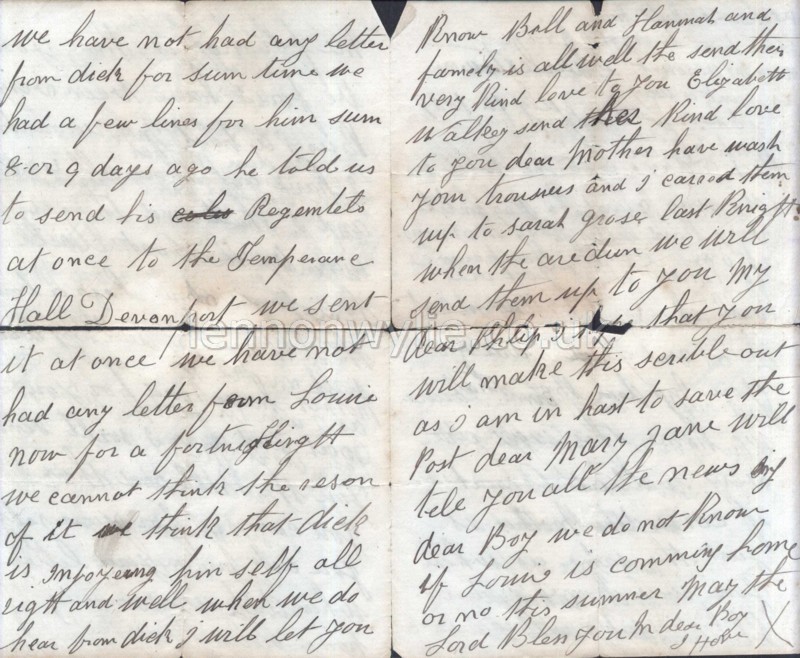 we have not had any letter
from dick for sum time we
had a few lines for him sum
8 or 9 days ago he told us
to send his Regemtels
at once to the Temperanc
Hall Devonport we sent
it at once we have not
had any letter from Louie
now for a
we cannot think the reson
of it we think that dick
is injoyeing him self all
right and well when we do
hear from dick I will let you
Know Bill and Hannah and
family is all well the send ther
very Kind love to you Elizabeth
Walkey send Kind love
to you dear Mother have wash
your trousers and I careed them
up to sarah grose last Knight
when the are dun we will
send them up to you My
dear Philip I that you
will make this scrible out
as I am in hast to save the
Post dear Mary Jane will
tele you all the news my
dear Boy we do not Know
if Louie is comming home
or no this summer May the
Lord Bless you M dear Boy
I Hope X
lennonwylie.co.uk